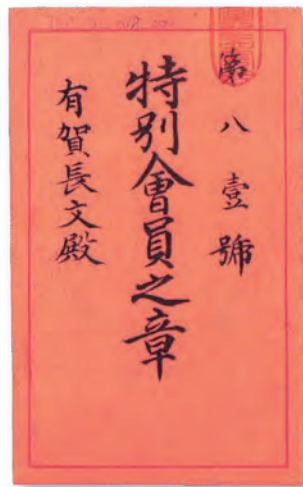 第八壹號
特別會員之章
有賀長文殿